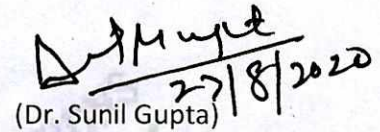 27/8/2020
(Dr. Sunil Gupta)